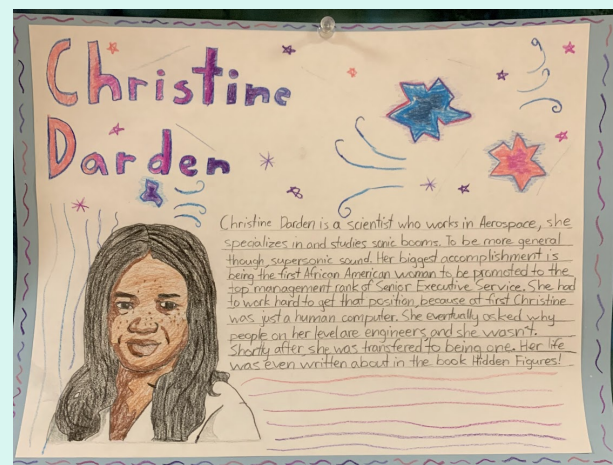 Christine
Darden
Christine Darden is a scientist who works in Aerospace, she
specializes in and studies sonic booms. To be more general
though, supersonic sound. Her biggest accomplishment is
being the first African American woman to be promoted to the
top management rank of Senior Executive Service. She had
to work hard to get that position, because at first Christine
was just a human computer. She eventually asked why
people on her level are engineers and she wasn't.
Shortly after she was transfered to being one. Her life
was even written about in the book Hidden Figures!